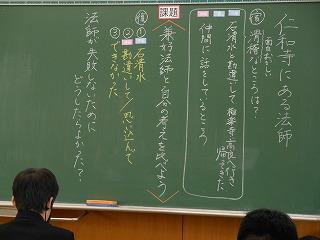 仁和寺にある法師
面白おかしい
復 滑稽なところは?
石清水と勘違いして極楽寺、高良へ行き
帰ってきた
仲間に話をしているところ
課題
兼好法師と自分の考えを比べよう
復
① 石清水
② 勘違いして/思い込んで
③ できなかった
法師が失敗しないために
どうしたらよかった?